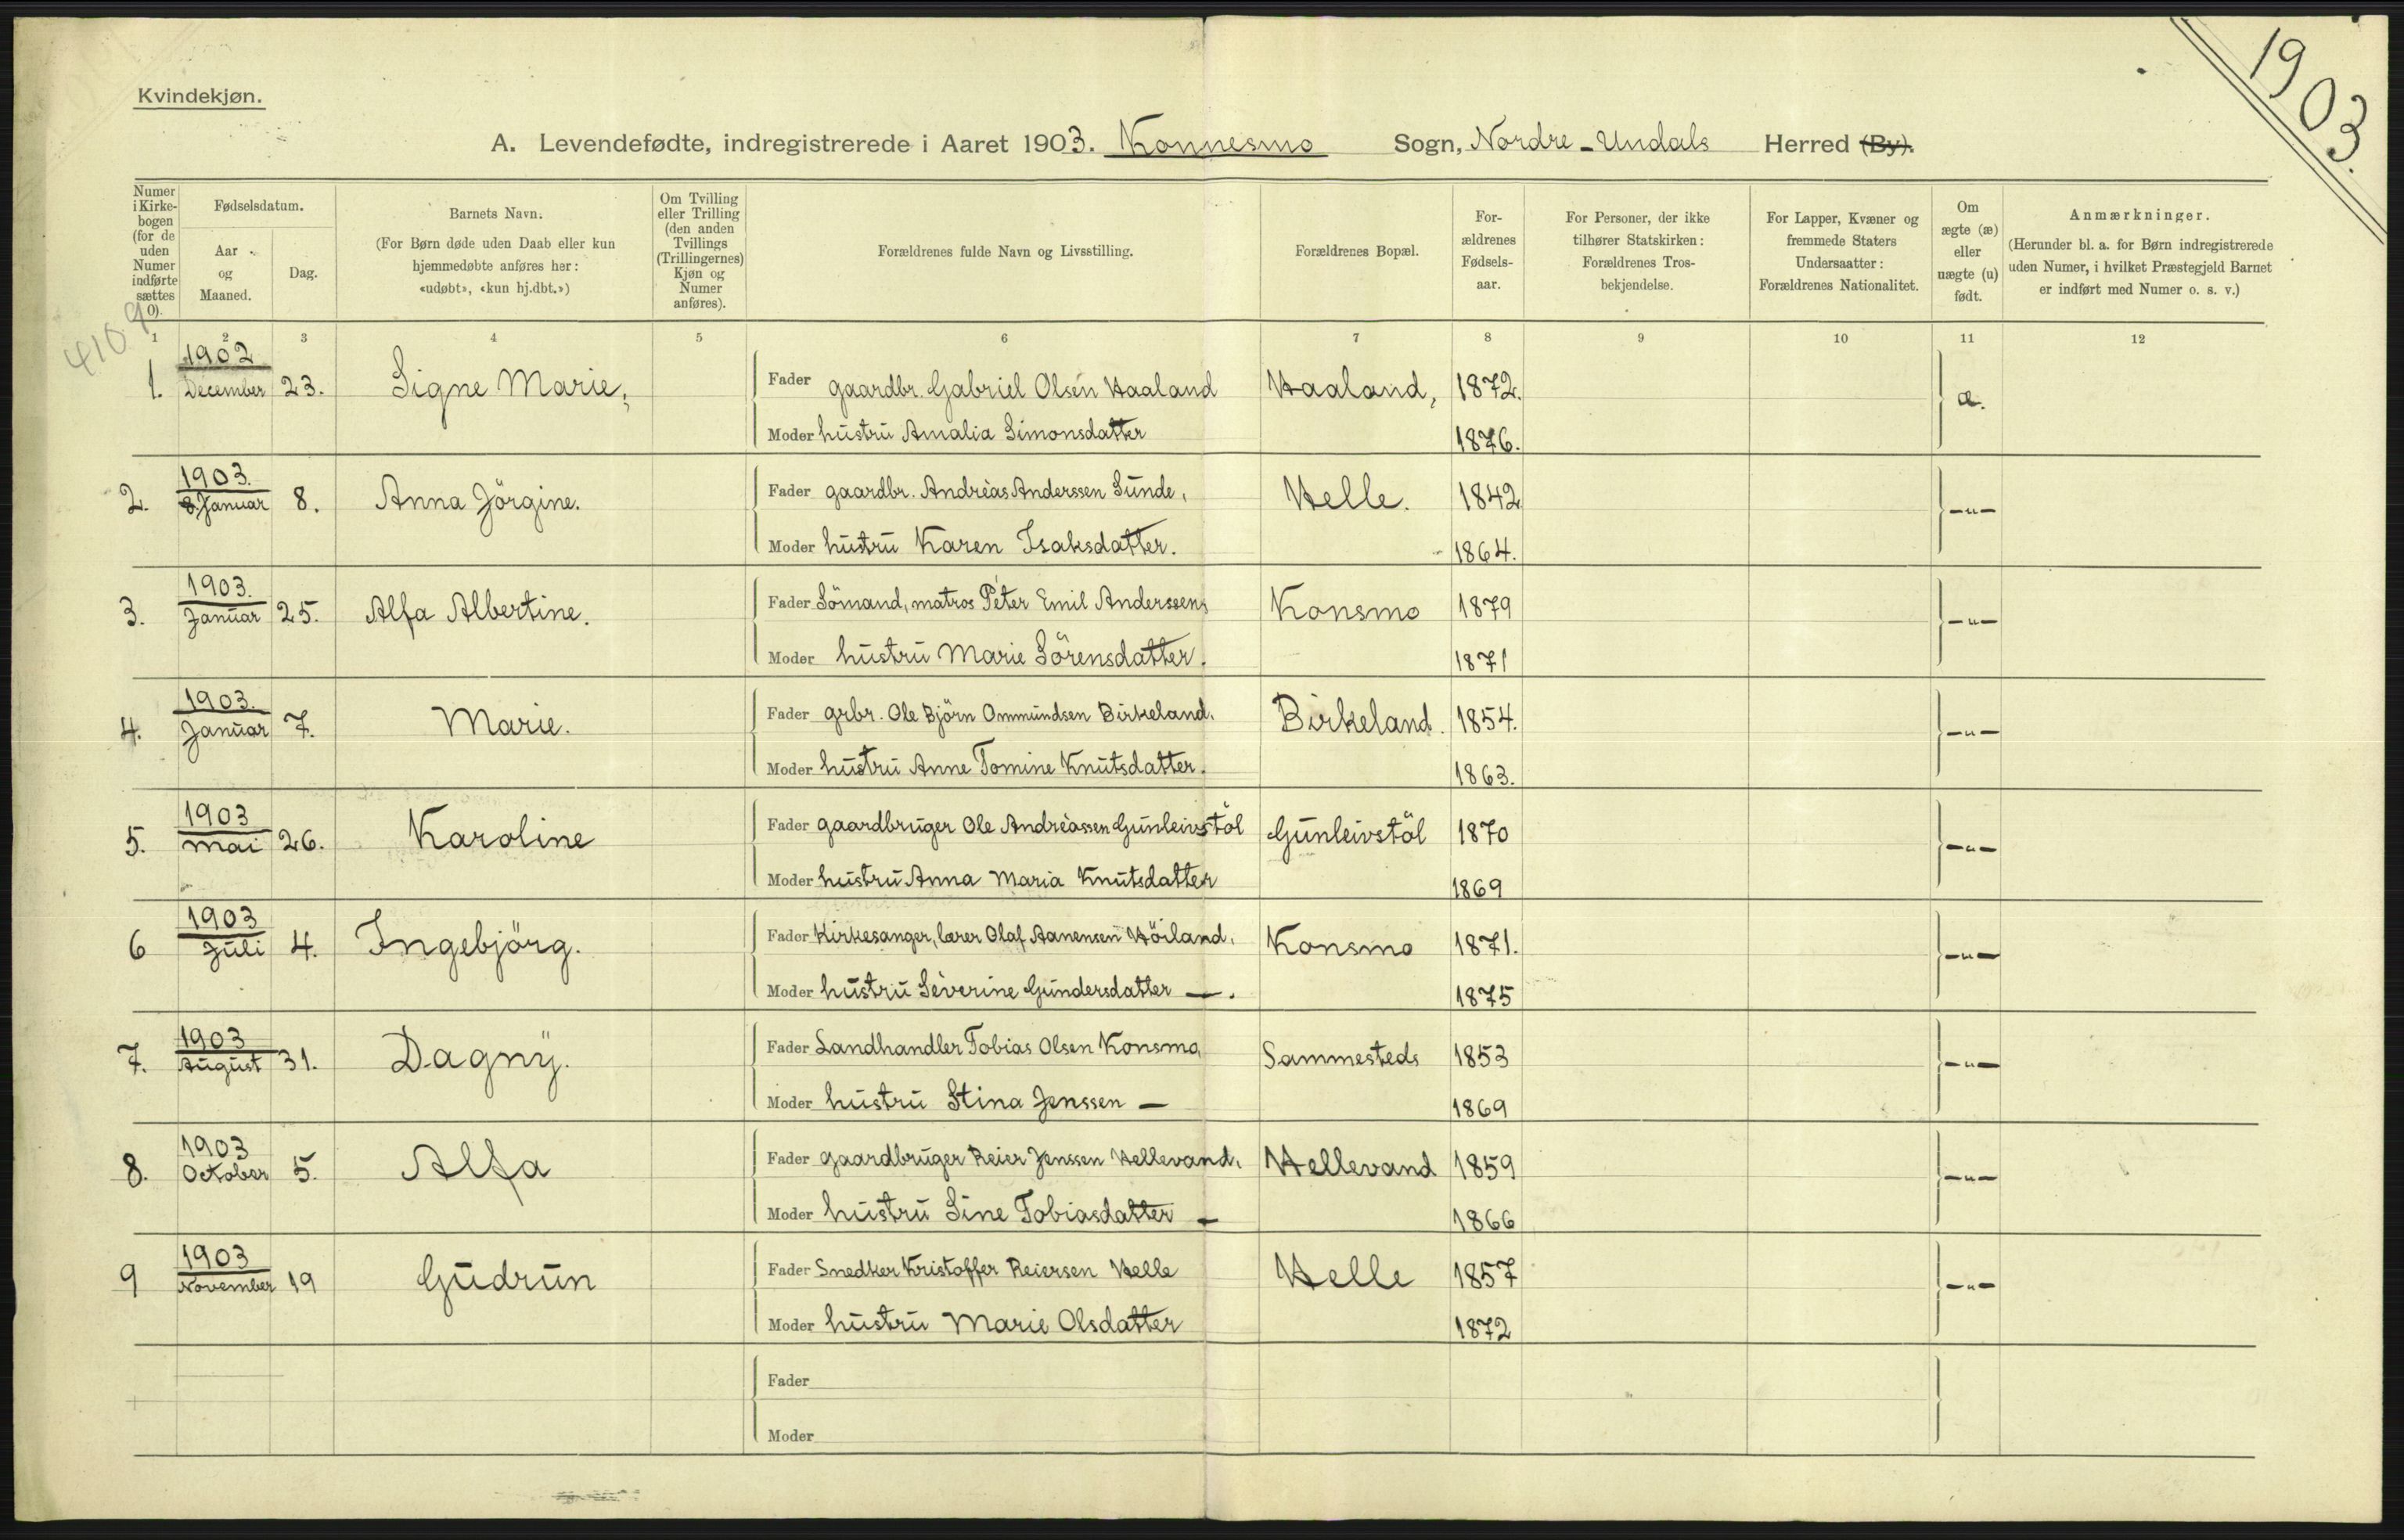 1903.
Kvindekjøn.
A. Levendefødte, indregistrerede i Aaret 1903. Konnesmo Sogn, Nordre-Undals Herred (By).
Numer i Kirkebogen (for de uden Numer indførte sættes 0).
Fødselsdatum.
Aar og Maaned.
Dag.
Barnets Navn.
(For Børn døde uden Daab eller kun hjemmedøbte anføres her: «udøbt», «kun hj.dbt.»)
Om Tvilling eller Trilling (den anden Tvillings (Trillingernes) Kjøn og Numer anføres).
Forældrenes fulde Navn og Livsstilling.
Forældrenes Bopæl.
Forældrenes Fødselsaar.
For Personer, der ikke tilhører Statskirken: Forældrenes Trosbekjendelse.
For Lapper, Kvæner og fremmede Staters Undersaatter: Forældrenes Nationalitet.
Om ægte (æ) eller uægte (u) født.
Anmærkninger.
(Herunder bl. a. for Børn indregistrerede uden Numer, i hvilket Præstegjeld Barnet er indført med Numer o. s. v.)
1 2 3 4 5 6 7 8 9 10 11 12
1. 1902 December 23. Signe Marie, Fader gaardbr. Gabriel Olsen Haaland Haaland, 1872. æ.
Moder hustru Amalia Simonsdatter 1876.
2. 1903. 8. Januar 8. Anna Jörgine. Fader gaardbr. Andreas Anderssen Sunde, Helle. 1842 -"-
Moder hustru Karen Isaksdatter. 1864.
3. 1903. Januar 25. Alfa Albertine. Fader Sömand, matros Peter Emil Anderssen, Konsmo 1879 -"-
Moder hustru Marie Sörensdatter. 1871
4. 1903. Januar 7. Marie. Fader grbr. Ole Björn Ommundsen Birkeland. Birkeland. 1854. -"-
Moder hustru Anne Tomine Knutsdatter. 1863.
5. 1903 Mai 26. Karoline Fader gaardbruger Ole Andreassen Gunleivstöl Gunleivstöl 1870 -"-
Moder hustru Anna Maria Knutsdatter 1869
6 1903 Juli 4. Ingebjörg. Fader Kirkesanger, lærer Olaf Aanensen Höiland. Konsmo 1871. -"-
Moder hustru Severine Gundersdatter —. 1875
7. 1903 August 31. Dagny. Fader Landhandler Tobias Olsen Konsmo, Sammesteds 1853 -"-
Moder hustru Stina Jenssen — 1869
8. 1903 October 5. Alfa Fader gaardbruger Reier Jenssen Hellevand. Hellevand 1859 -"-
Moder hustru Sine Tobiasdatter — 1866
9 1903 November 19 Gudrun Fader Snedker Kristoffer Reiersen Helle Helle 1857 -"-
Moder hustru Marie Olsdatter 1872
Fader
Moder